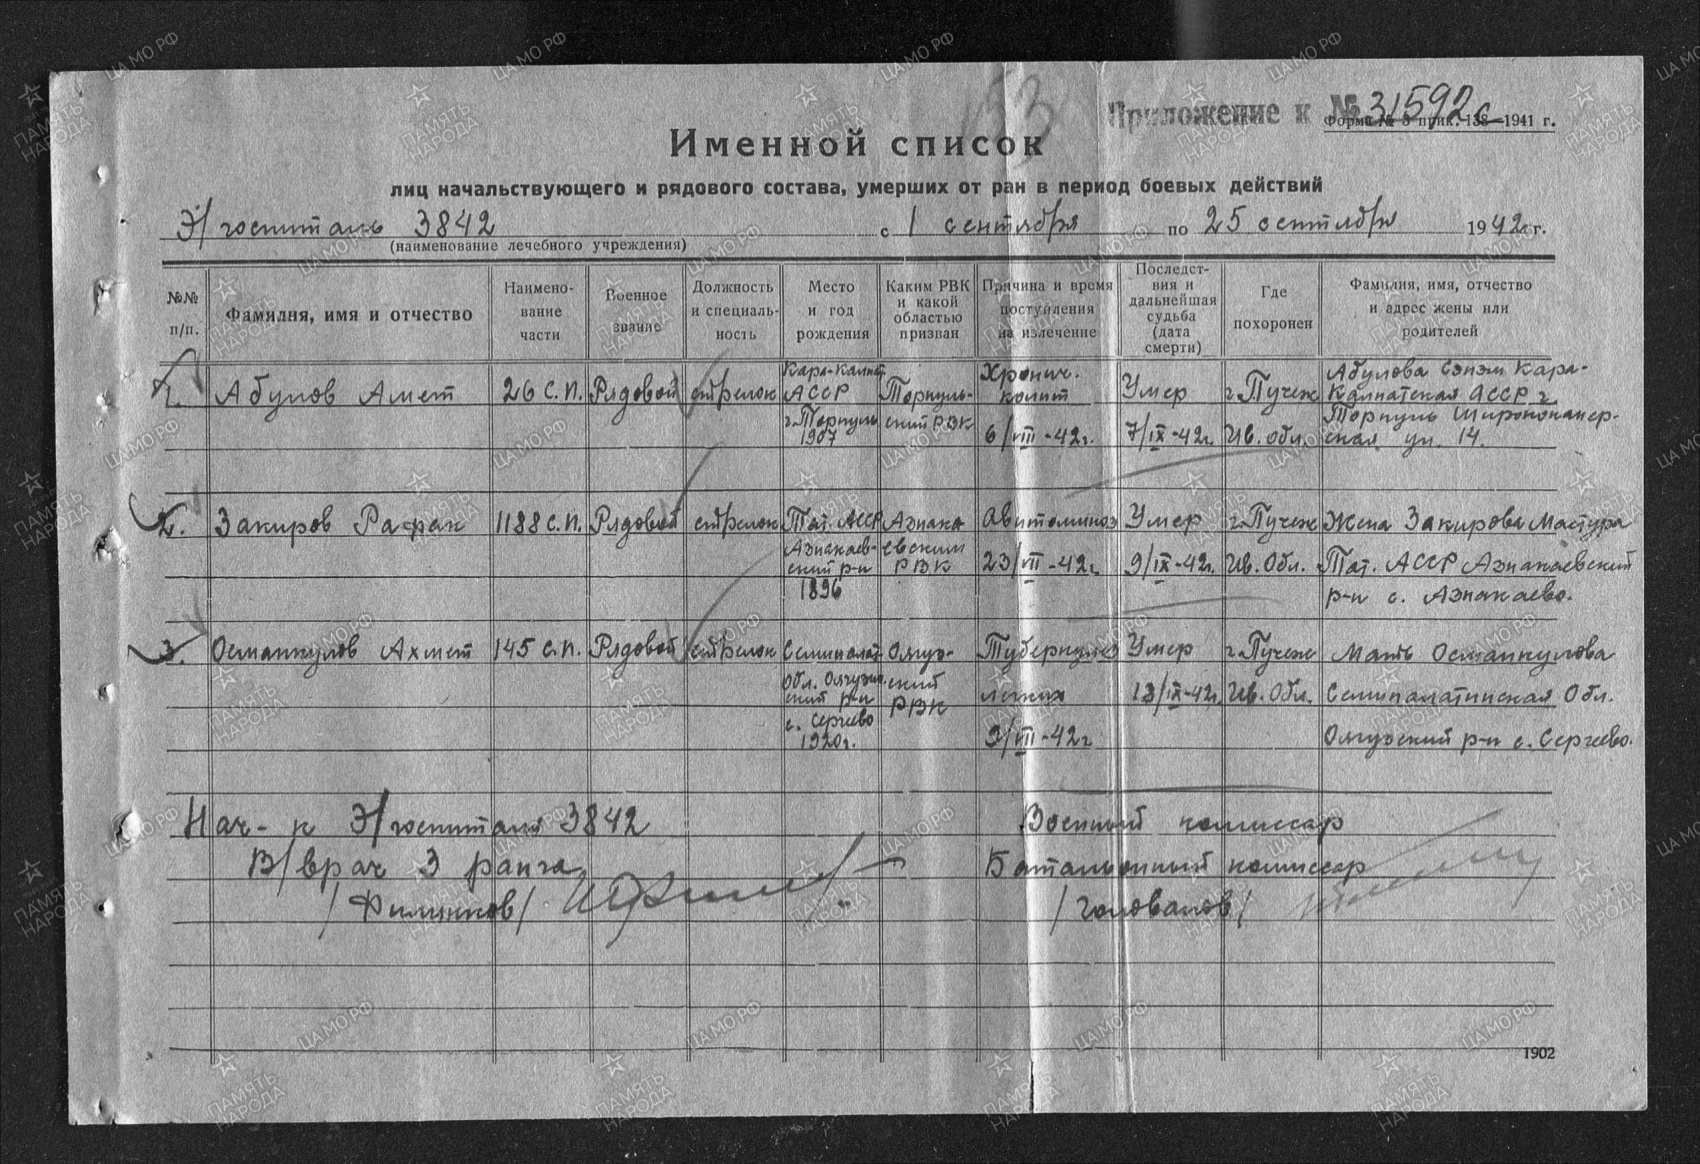 53
Приложение к № 31592с
Форма № 8 прик. 138—1941 г.
Именной список
лиц начальствующего и рядового состава, умерших от ран в период боевых действий
Э/госпиталь 3842 с 1 сентября по 25 сентября 1942 г.
(наименование лечебного учреждения)
№№ п/п.
Фамилия, имя и отчество
Наимено-
вание
части
Военное
звание
Должность
и специаль-
ность
Место
и год
рождения
Каким РВК
и какой
областью
призван
Причина и время
поступления
на излечение
Последст-
вия и
дальнейшая
судьба
(дата
смерти)
Где
похоронен
Фамилия, имя, отчество
и адрес жены или
родителей
1. Абулов Амет
26 с.п.
Рядовой
стрелок
Кара-Калпат.
АССР
г. Торкуль
1907
Торкуль-
ский РВК
Хронич.
колит
6/VIII-42г.
Умер
7/IX-42г.
г. Пучеж
Ив. обл.
Абулова Сэпэм Кара-
Калпатская АССР г.
Торкуль Широконанер-
ская ул. 14.
2. Закиров Рафак
1188 с.п.
Рядовой
стрелок
Тат. АССР
Азнакаев-
ский р-н
1896
Азнака-
евским
РВК
Авитоминоз
23/VII-42г.
Умер
9/IX-42г.
г. Пучеж
Ив. Обл.
Жена Закирова Мастура
Тат. АССР Азнакаевский
р-н с. Азнакаево.
3. Оспанкулов Ахмет
145 с.п.
Рядовой
стрелок
Семипалат
Обл.
ский р-н
с. Сергеево
1920г.
ский
РВК
Туберкулез
легких
9/VII-42г
Умер
13/IX-42г.
г. Пучеж
Ив. Обл.
Мать Оспанкулова
Семипалатинская Обл.
р-н с. Сергеево.
Нач-к Э/госпиталя 3842
В/врач 3 ранга
/Филиппов/
Военный комиссар
Батальонный комиссар
/Голованов/
1902
ПАМЯТЬ НАРОДА
ЦА МО РФ